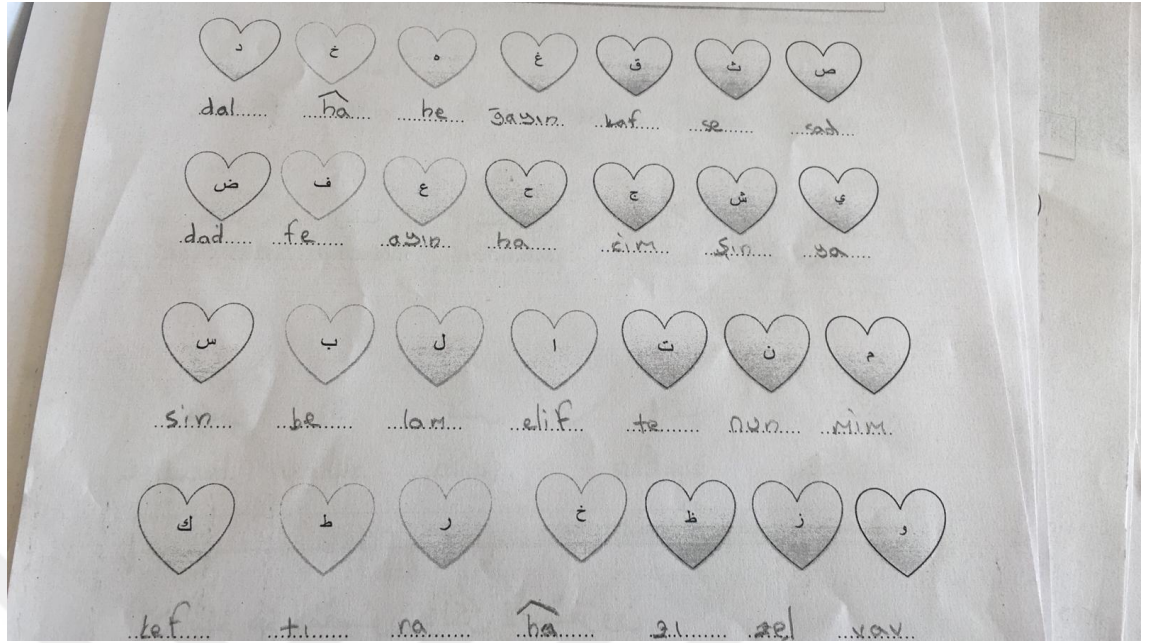 د خ ه غ ق ث ص
dal hâ he ğayın kaf se sad
ض ف ع ح ج ش ي
dad fe ayın ha cim şın ya
س ب ل ا ت ن م
sin be lam elif te nun mim
ك ط ر خ ظ ز و
kef tı ra hâ zı zel vav